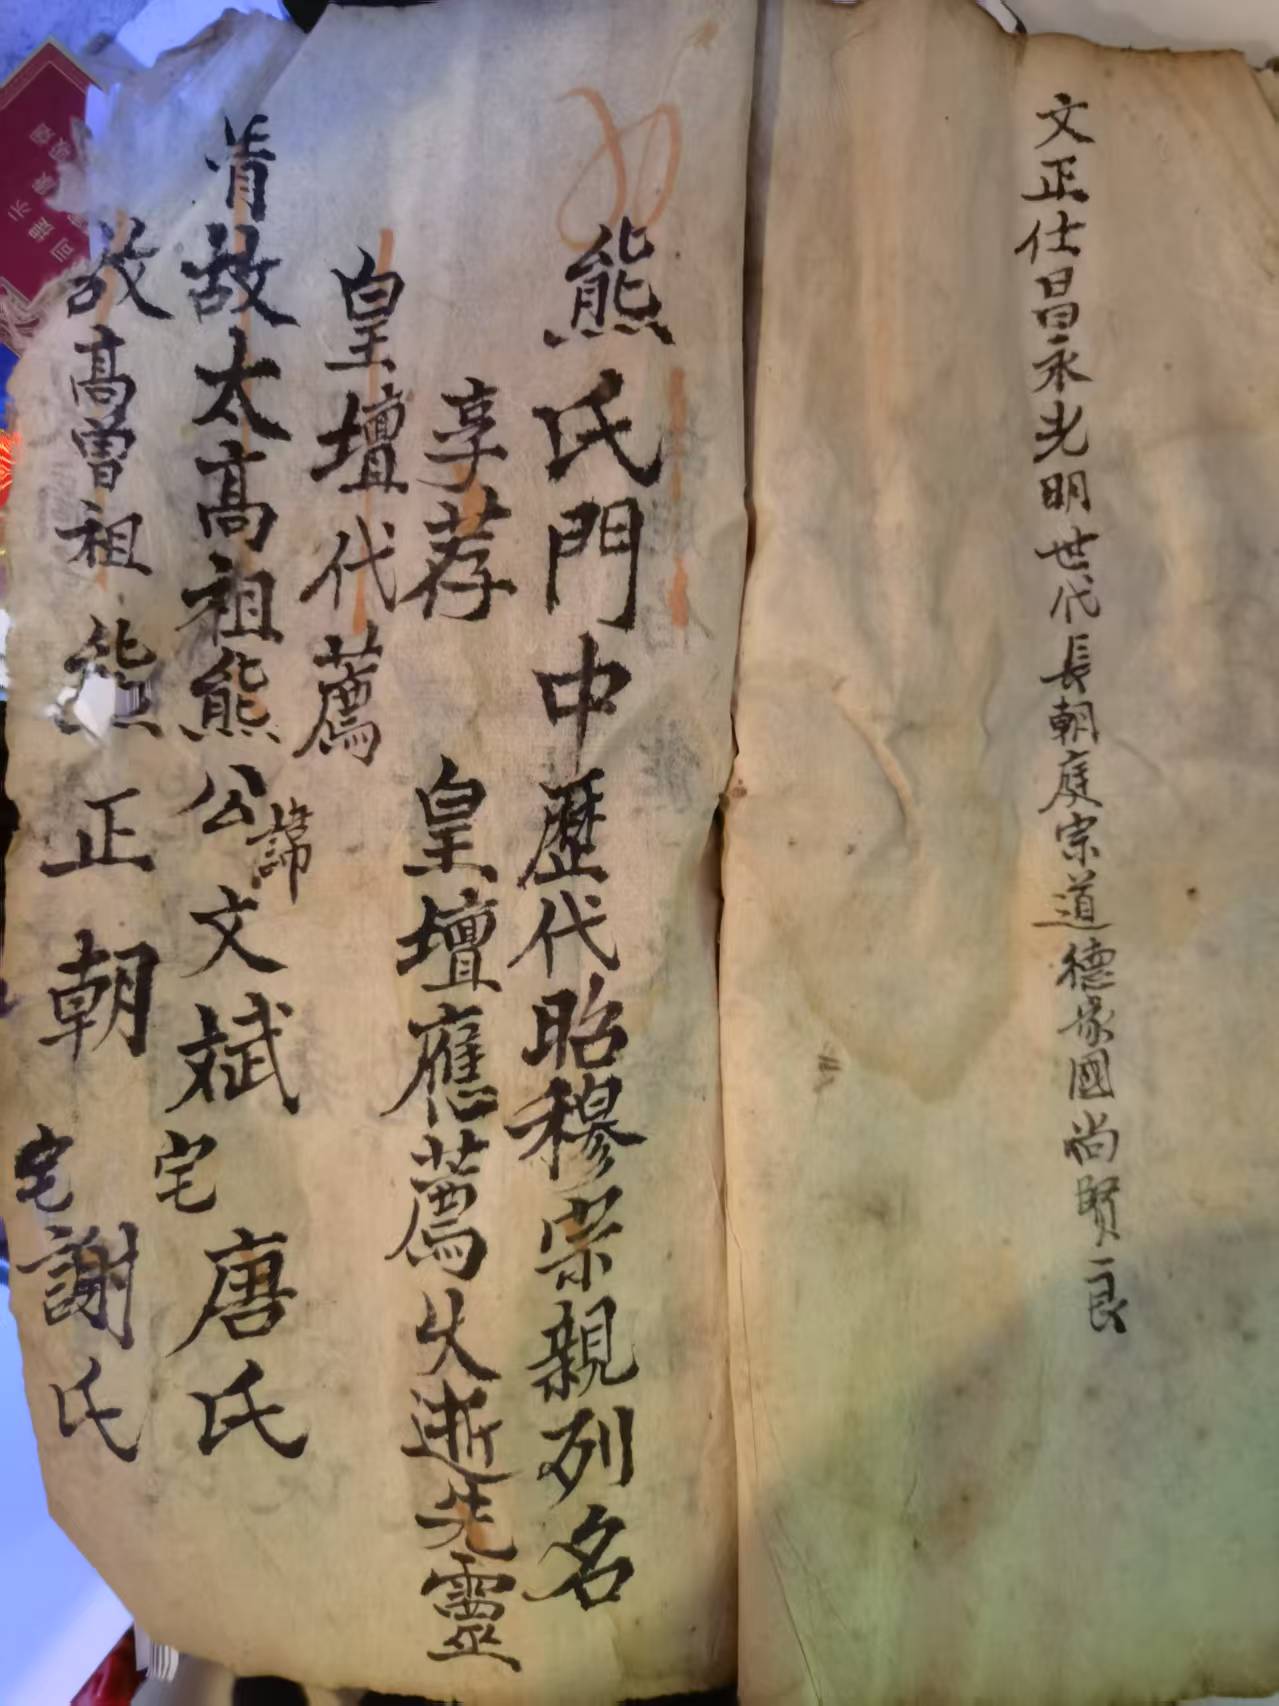 文正仕昌永光明世代長朝庭宗道德家國尚賢良
熊氏門中歷代昭穆宗親列名
享荐 皇壇應薦失逝先靈
皇壇代薦
故太高祖熊公諱文斌 宅唐氏
故高曾祖熊正朝 宅謝氏